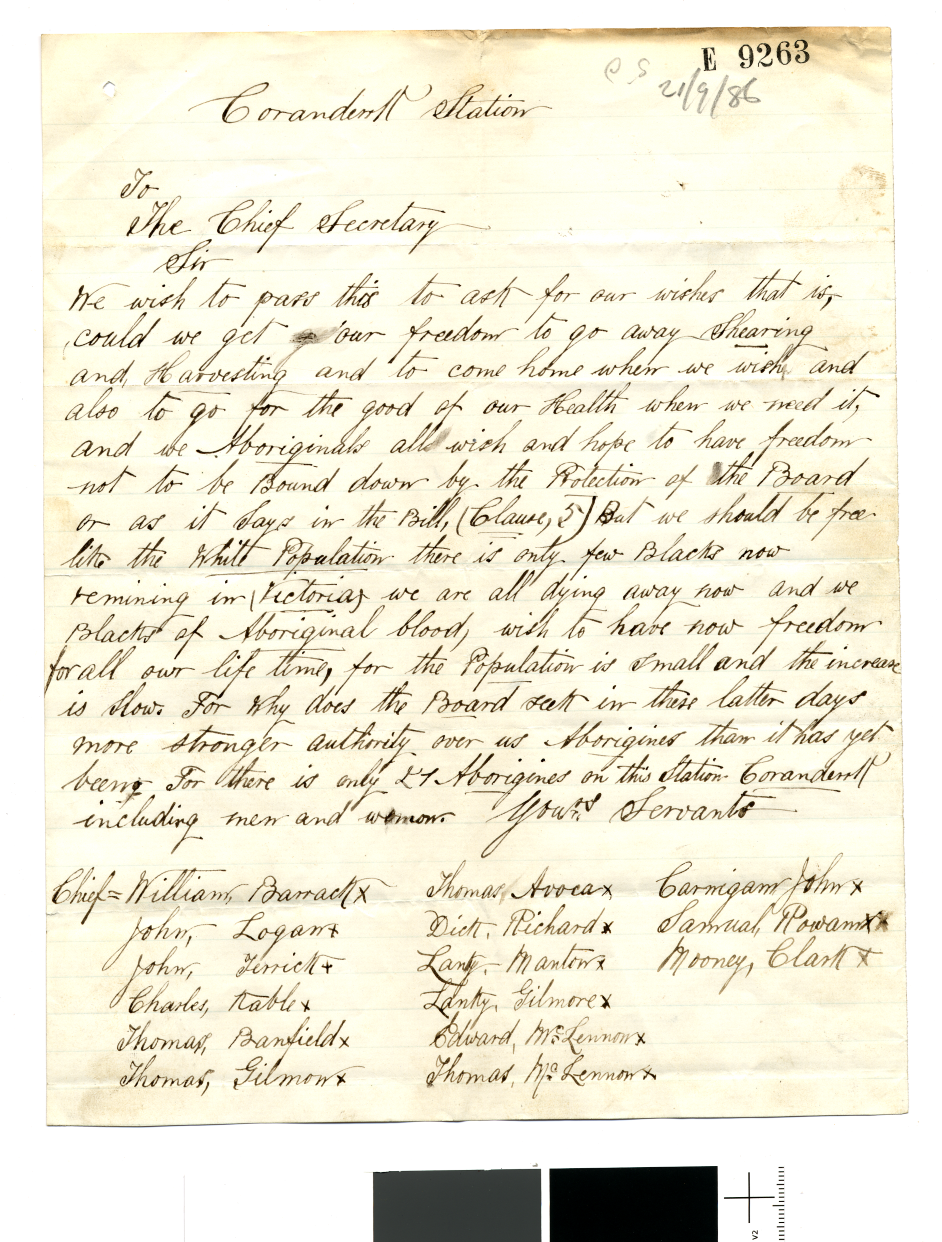 E 9263
C S
21/9/86
Coranderrk Station
To
The Chief Secretary
Sir
We wish to pass this to ask for our wishes that is,
could we get our freedom to go away Shearing
and, Harvesting and to come home when we wish, and
also to go for the good of our Health when we need it,
and we Aboriginals all wish and hope to have freedom
not to be Bound down by the Protection of the Board
or as it Says in the Bill, (Clause, 5) But we should be free
like the White Population there is only few Blacks now
remining in (Victoria) we are all dying away now and we
Blacks of Aboriginal blood, wish to have now freedom
for all owr life time, for the Population is small and the increase
is slow. For Why does the Board seek in these latter days
more stronger authority over us Aborigines than it has yet
been, For there is only Aborigines on this Station Coranderrk
including men and women. Yours Servants
Chief= William, Barrack x Thomas, Avoca x Carnigam John x
John, Logan x Dick, Richard x Samual, Rowan x x
John, Terrick x Lanky- Manton x Mooney, Clark x
Charles, Kable x Lanky. Gilmore x
Thomas, Banfield x Edward, McLennon x
Thomas, Gilmour x Thomas, McLennon x
V2